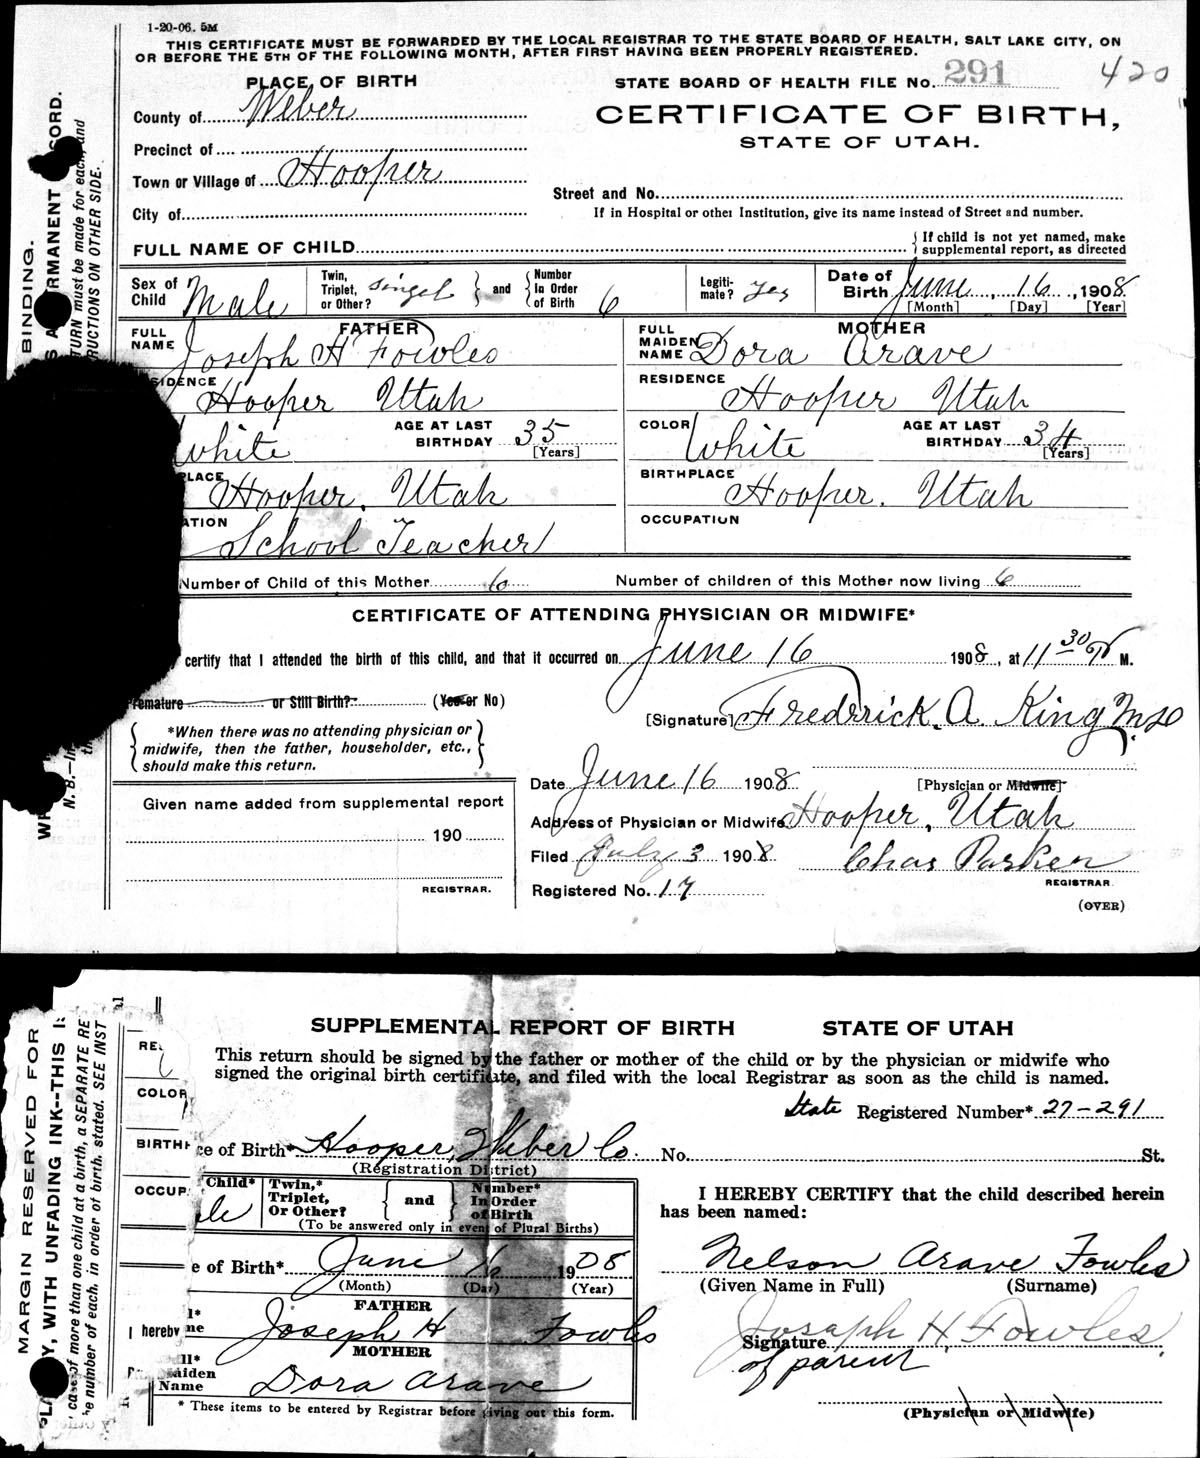 1-20-06. 5M
THIS CERTIFICATE MUST BE FORWARDED BY THE LOCAL REGISTRAR TO THE STATE BOARD OF HEALTH, SALT LAKE CITY, ON
OR BEFORE THE 5TH OF THE FOLLOWING MONTH, AFTER FIRST HAVING BEEN PROPERLY REGISTERED.
PLACE OF BIRTH
STATE BOARD OF HEALTH FILE No. 291
420
County of Weber
CERTIFICATE OF BIRTH,
STATE OF UTAH.
Precinct of
Town or Village of Hooper
Street and No.
City of
If in Hospital or other Institution, give its name instead of Street and number.
FULL NAME OF CHILD
If child is not yet named, make
supplemental report, as directed
Sex of Child Male
Twin, Triplet, or Other? Singel and Number In Order of Birth 6
Legiti-mate? Yes
Date of Birth June, 16, 1908
[Month] [Day] [Year]
FATHER
FULL NAME Joseph H Fowles
MOTHER
FULL MAIDEN NAME Dora Arave
SIDENCE Hooper Utah
RESIDENCE Hooper Utah
White AGE AT LAST BIRTHDAY 35 [Years]
COLOR White AGE AT LAST BIRTHDAY 34 [Years]
PLACE Hooper, Utah
BIRTHPLACE Hooper, Utah
ATION School Teacher
OCCUPATION
Number of Child of this Mother 6 Number of children of this Mother now living 6
CERTIFICATE OF ATTENDING PHYSICIAN OR MIDWIFE*
certify that I attended the birth of this child, and that it occurred on June 16 1908, at 11 30 M.
remature or Still Birth? (Yes or No)
[Signature] Fredrrick. A. King M.D
*When there was no attending physician or
midwife, then the father, householder, etc.,
should make this return.
Date June 16 1908 [Physician or Midwife]
Given name added from supplemental report
190
REGISTRAR.
Address of Physician or Midwife Hooper, Utah
Filed July 3 1908 Chas Parker
REGISTRAR
Registered No. 17
(OVER)
BINDING.
N. B.—In
SUPPLEMENTAL REPORT OF BIRTH STATE OF UTAH
This return should be signed by the father or mother of the child or by the physician or midwife who
signed the original birth certificate, and filed with the local Registrar as soon as the child is named.
State Registered Number* 27-291
ce of Birth* Hooper, Weber Co. No. St.
(Registration District)
Child* le
Twin,* Triplet, Or Other? and Number* In Order of Birth
(To be answered only in event of Plural Births)
I HEREBY CERTIFY that the child described herein
has been named:
e of Birth* June 16 1908
(Month) (Day) (Year)
Nelson Arave Fowles
(Given Name in Full) (Surname)
FATHER
I hereby
me Joseph H Fowles
Signature Joseph H. Fowles
of parent
MOTHER
aiden
Name Dora Arave
* These items to be entered by Registrar before giving out this form.
(Physician or Midwife)
COLOR
BIRTH
OCCUP
MARGIN RESERVED FOR
Y, WITH UNFADING INK--THIS IS
case of more than one child at a birth, a SEPARATE RE
e number of each, in order of birth, stated. SEE INST